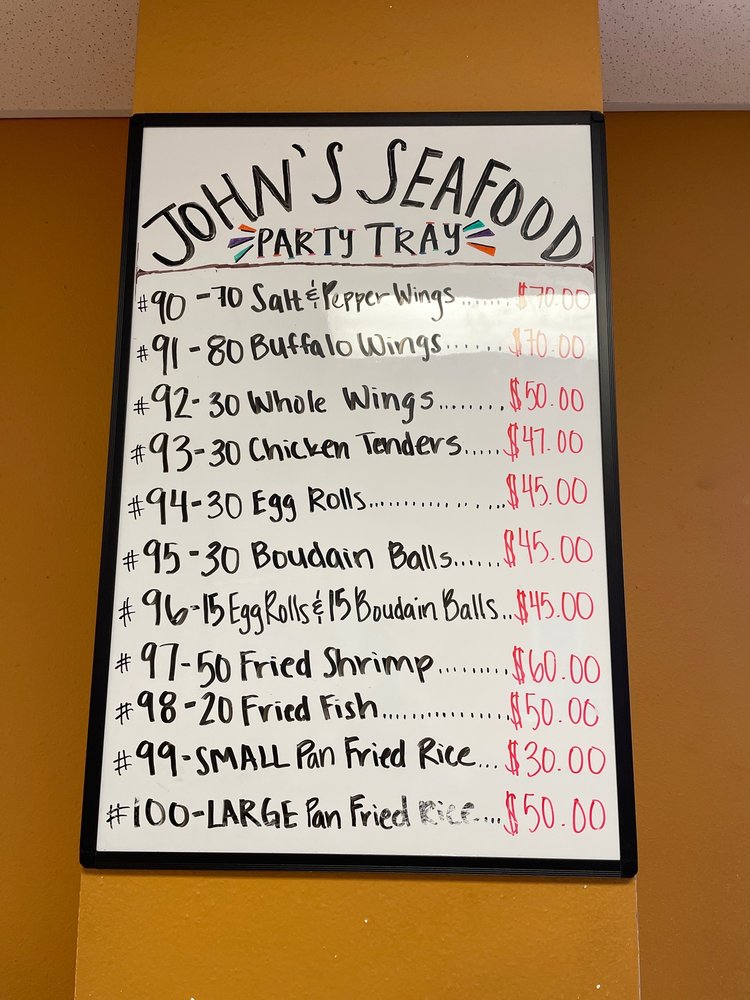 JOHN'S SEAFOOD
PARTY TRAY
#90-70 Salt & Pepper Wings.......$70.00
#91-80 Buffalo Wings......$70.00
#92-30 Whole Wings........$50.00
#93-30 Chicken Tenders.....$47.00
#94-30 Egg Rolls...............$45.00
#95-30 Boudain Balls......$45.00
#96-15 Egg Rolls & 15 Boudain Balls..$45.00
#97-50 Fried Shrimp.........$60.00
#98-20 Fried Fish................$50.00
#99-SMALL Pan Fried Rice...$30.00
#100-LARGE Pan Fried Rice....$50.00